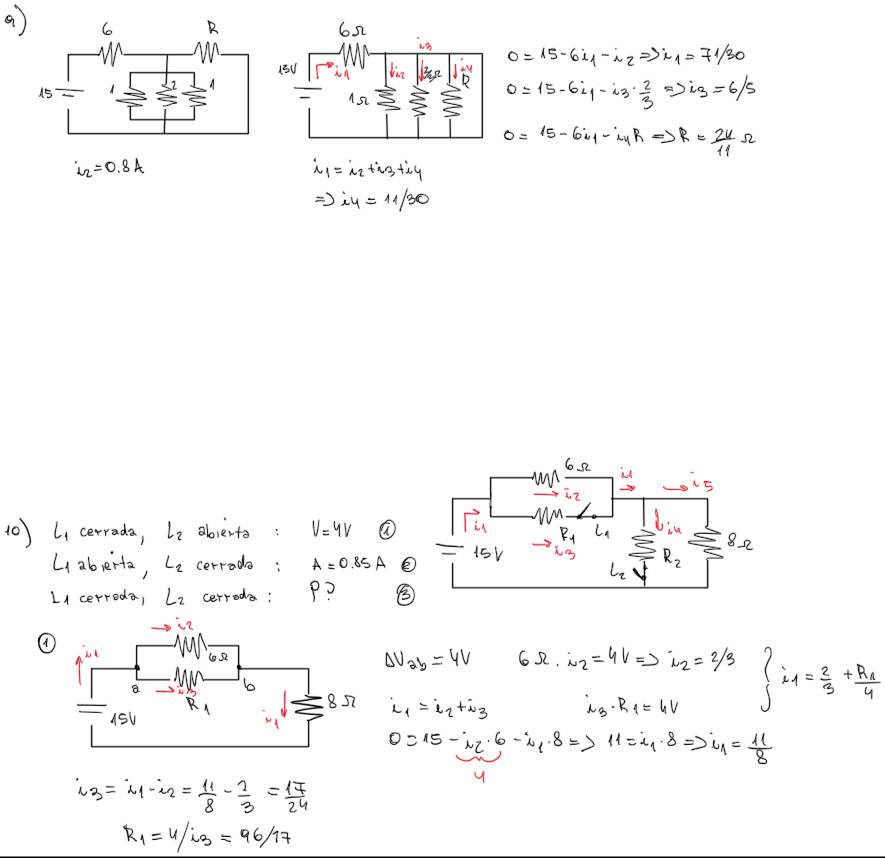 9)
6 R
15 1 2 1
i₂=0.8A
6Ω
15V i₁ i₂ i₃ i₄
1Ω 2/3Ω R
i₁=i₂+i₃+i₄
=> i₄ = 11/30
0=15-6i₁-i₂ => i₁=71/30
0=15-6i₁-i₃·2/3 => i₃=6/5
0= 15-6i₁-i₄R => R=24/11 Ω
10) L₁ cerrada, L₂ abierta : V=4V ①
L₁ abierta, L₂ cerrada : A=0.85A ②
L₁ cerrada, L₂ cerrada : P? ③
6Ω
i₁ i₂ i₁ i₅
R₁ L₁
15V i₃ i₄ 8Ω
L₂ R₂
①
i₂
i₁ 6Ω
a i₃ b
R₁
15V i₁ 8Ω
ΔVab=4V 6Ω.i₂=4V => i₂=2/3
i₁=i₂+i₃ i₃·R₁=4V } i₁=2/3+R₁/4
0=15-i₂·6-i₁·8 => 11=i₁·8 => i₁=11/8
4
i₃=i₁-i₂=11/8-2/3=17/24
R₁=4/i₃=96/17